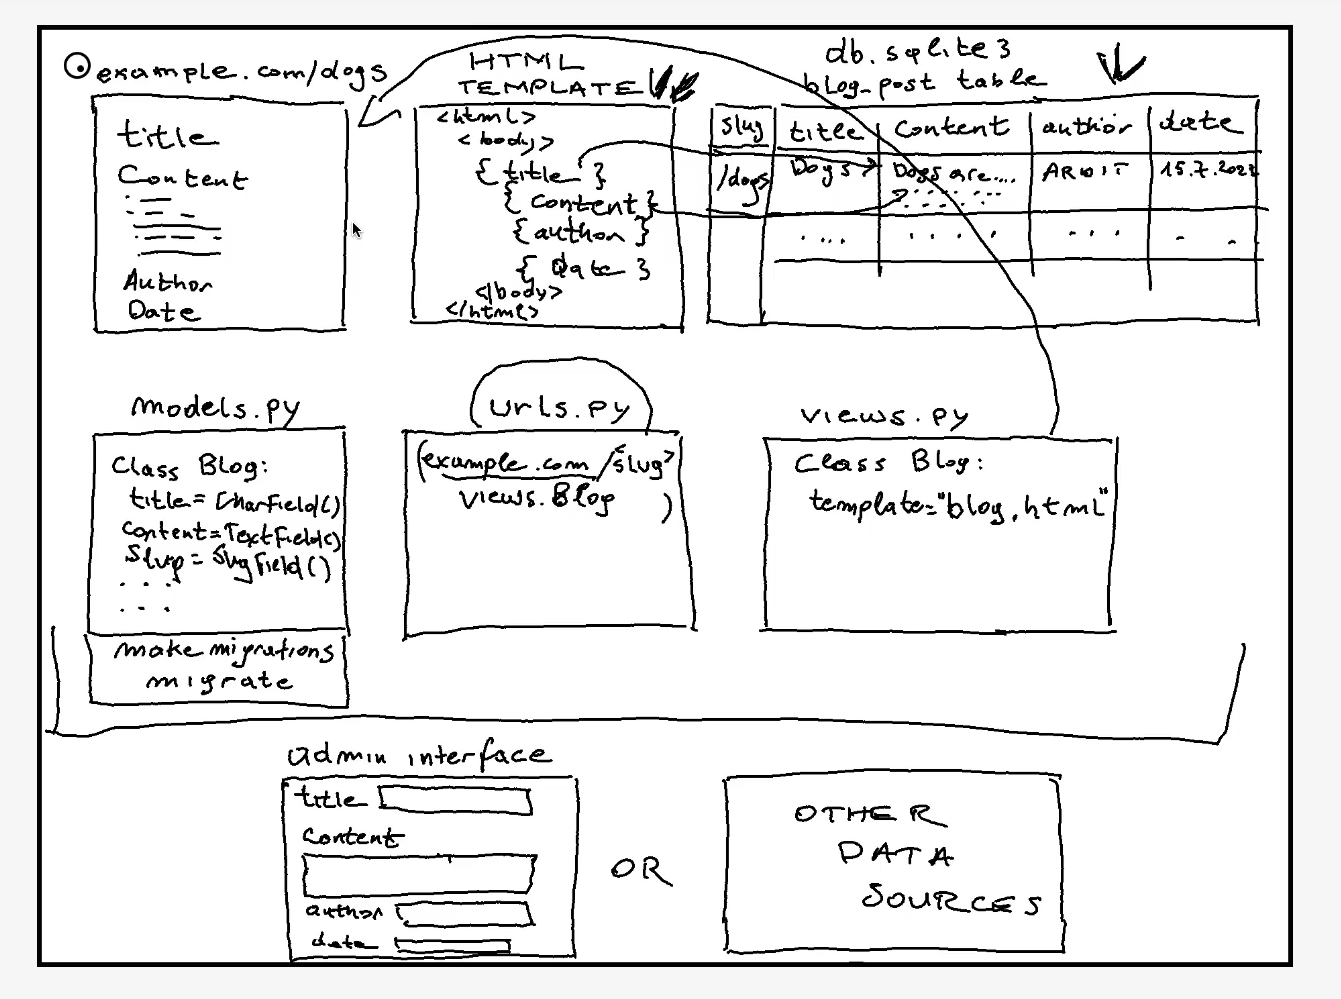 example.com/dogs
title
Content
Author
Date
HTML
TEMPLATE
<html>
<body>
{ title }
{ content }
{ author }
{ date }
</body>
</html>
db.sqlite3
blog_post table
slug title content author date
/dogs Dogs Dogs are.... ARDIT
models.py
Class Blog:
title = CharField()
content = TextField()
Slug = SlugField()
. . .
. . .
make migrations
migrate
urls.py
(example.com/<slug>
views.Blog )
views.py
Class Blog:
template="blog.html"
admin interface
title
Content
author
date
OR
OTHER
DATA
SOURCES